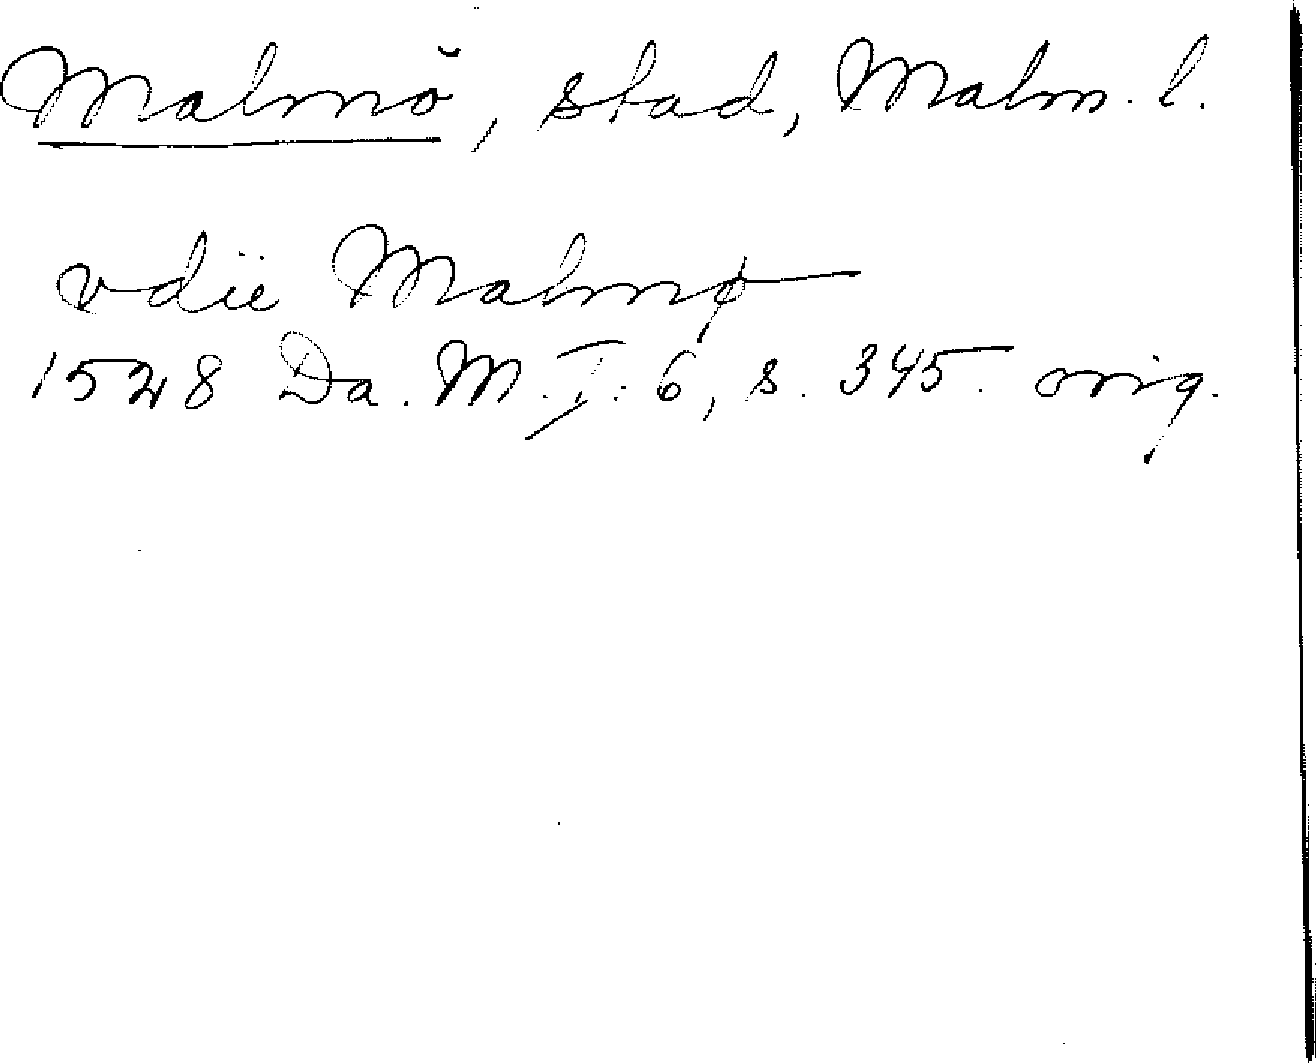 Malmö, stad, Malm. l.
vdïe Malmø
1528 Da. M. I: 6, s. 345. orig.